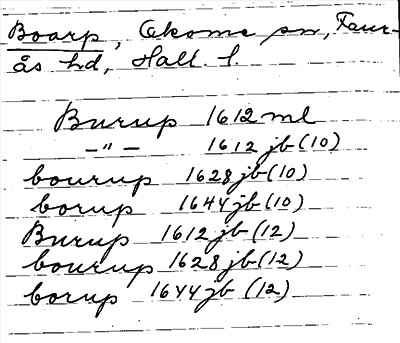 Boarp, Okome sn, Faur-
ås hd, Hall. l.
Burup 1612 ml
-"- 1612 jb (10)
bourup 1628 jb (10)
borup 1644 jb (10)
Burup 1612 jb (12)
bourup 1628 jb (12)
borup 1644 jb (12)